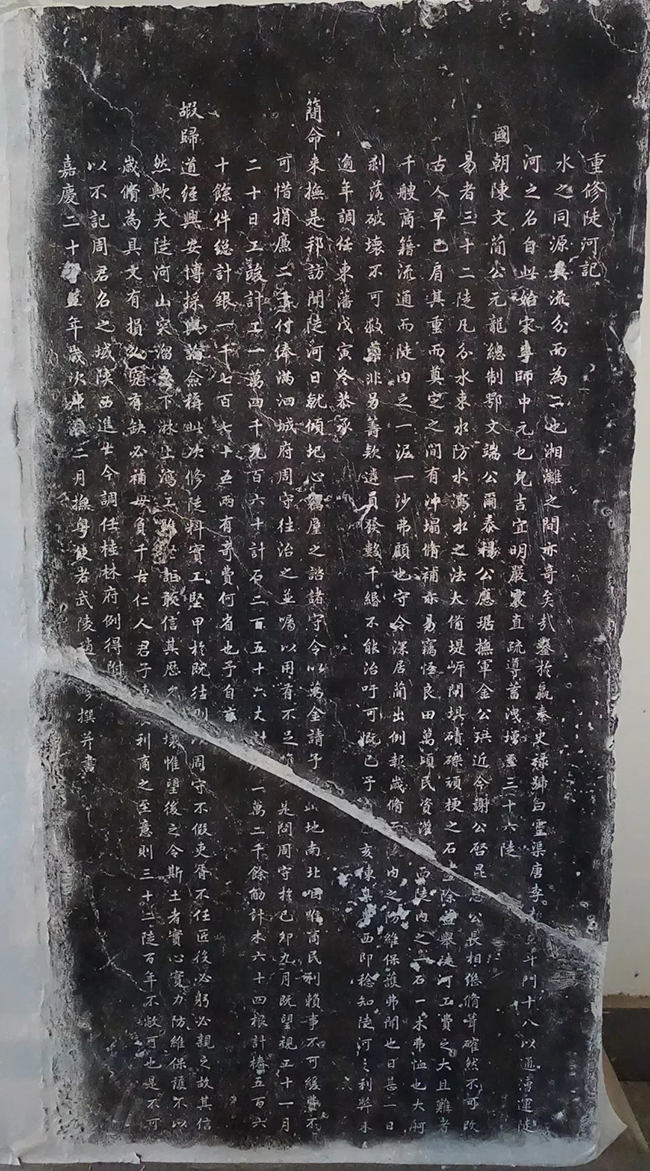 重修陡河記
水之同源異流分而為二也湘灕之間亦奇矣哉鑿於嬴秦史祿號曰靈渠唐李斗門十八以通漕運陡
河之名自此始宋李師中元乜兒吉宜明嚴震直疏導蓄洩增至三十六陡
國朝陳文簡公元龍總制鄂文端公爾泰楊公應琚撫軍金公珙近今謝公啓昆公長相繼脩葺確然不可改
易者三十二陡凡分水束水防水瀉水之法大備堤岸閘壩磧礫頑梗之石除舉陡河工費之大且難者
古人早已肩其重而奠定之間有沖塌脩補亦易竊怪良田萬頃民資灌而陡內之一石一木弗恤也大舸
千艘商籍流通而陡內之一泥一沙弗顧也守令深居簡出例報歲脩內之維保護弗聞也日甚一日
剝落破壞不可非易籌款遴員發數千緡不能治吁可慨已予亥陳臬西即稔知陡河之利弊未
逾年調任東藩戊寅冬恭承
簡命來撫是邦訪聞陡河日就傾圮心竊之諮諸守令以萬金請予山地南北咽喉商民利賴事不可緩費不
可惜捐廉二千付俸滿泗城府周守往治之並囑以用省不足是問周守於己卯九月既望視工十一月
二十日工竣計工一萬四千九百六十計石二百五十六丈計一萬二千餘觔計木六十四根計樁五百六
十餘件總計銀一千七百七十五兩有奇費何省也予自
嘏歸道經興安博採輿論僉稱此次修陡料實工堅甲於既往則周守不假吏胥不任匠役必躬必親之故其信
然歟夫陡河山突溜下淋上瀉敢信其歷久壞惟望後之令斯土者實心實力防維保護不以
歲脩為具文有損必有缺必補毋負千古仁人君子利商之至意則三十二陡百年不敝可也是不可
以不記周君名之域陝西進士今調任桂林府例得附
嘉慶二十年歲次二月撫粵使者武陵趙撰并書